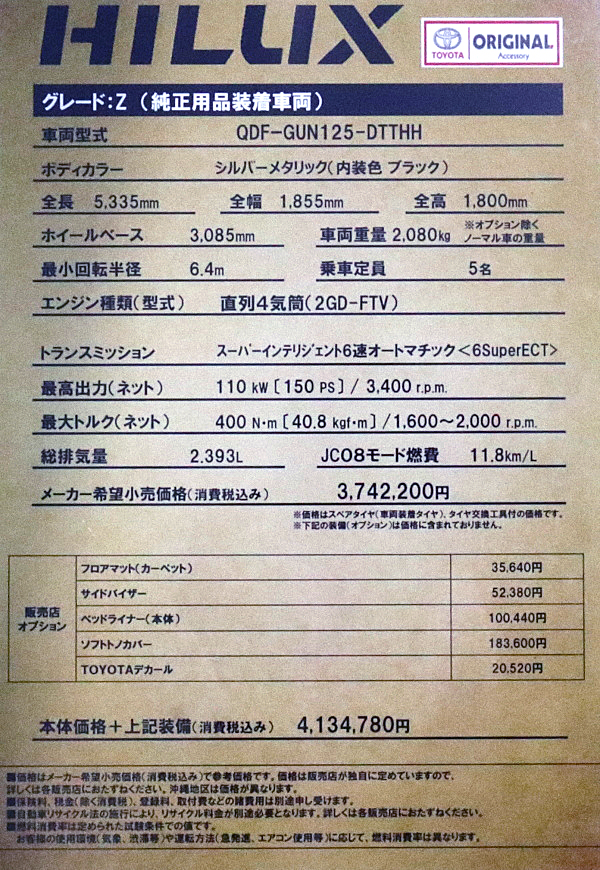 HILUX
TOYOTA
ORIGINAL
Accessory
グレード:Z (純正用品装着車両)
車両型式 QDF-GUN125-DTTHH
ボディカラー シルバーメタリック(内装色 ブラック)
全長 5,335mm 全幅 1,855mm 全高 1,800mm
ホイールベース 3,085mm 車両重量 2,080kg ※オプション除く
ノーマル車の重量
最小回転半径 6.4m 乗車定員 5名
エンジン種類(型式) 直列4気筒(2GD-FTV)
トランスミッション スーパーインテリジェント6速オートマチック<6SuperECT>
最高出力(ネット) 110 kW [150 PS] / 3,400 r.p.m.
最大トルク(ネット) 400 N・m [40.8 kgf・m] /1,600~2,000 r.p.m.
総排気量 2.393L JC08モード燃費 11.8km/L
メーカー希望小売価格(消費税込み) 3,742,200円
※価格はスペアタイヤ(車両装着タイヤ)、タイヤ交換工具付の価格です。
※下記の装備(オプション)は価格に含まれておりません。
販売店
オプション
フロアマット(カーペット) 35,640円
サイドバイザー 52,380円
ベッドライナー(本体) 100,440円
ソフトトノカバー 183,600円
TOYOTAデカール 20,520円
本体価格+上記装備(消費税込み) 4,134,780円
■価格はメーカー希望小売価格(消費税込み)で参考価格です。価格は販売店が独自に定めていますので、
詳しくは各販売店におたずねください。沖縄地区は価格が異なります。
■保険料、税金(除く消費税)、登録料、取付費などの諸費用は別途申し受けます。
■自動車リサイクル法の施行により、リサイクル料金が別途必要となります。詳しくは各販売店におたずねください。
■燃料消費率は定められた試験条件での値です。
お客様の使用環境(気象、渋滞等)や運転方法(急発進、エアコン使用等)に応じて、燃料消費率は異なります。